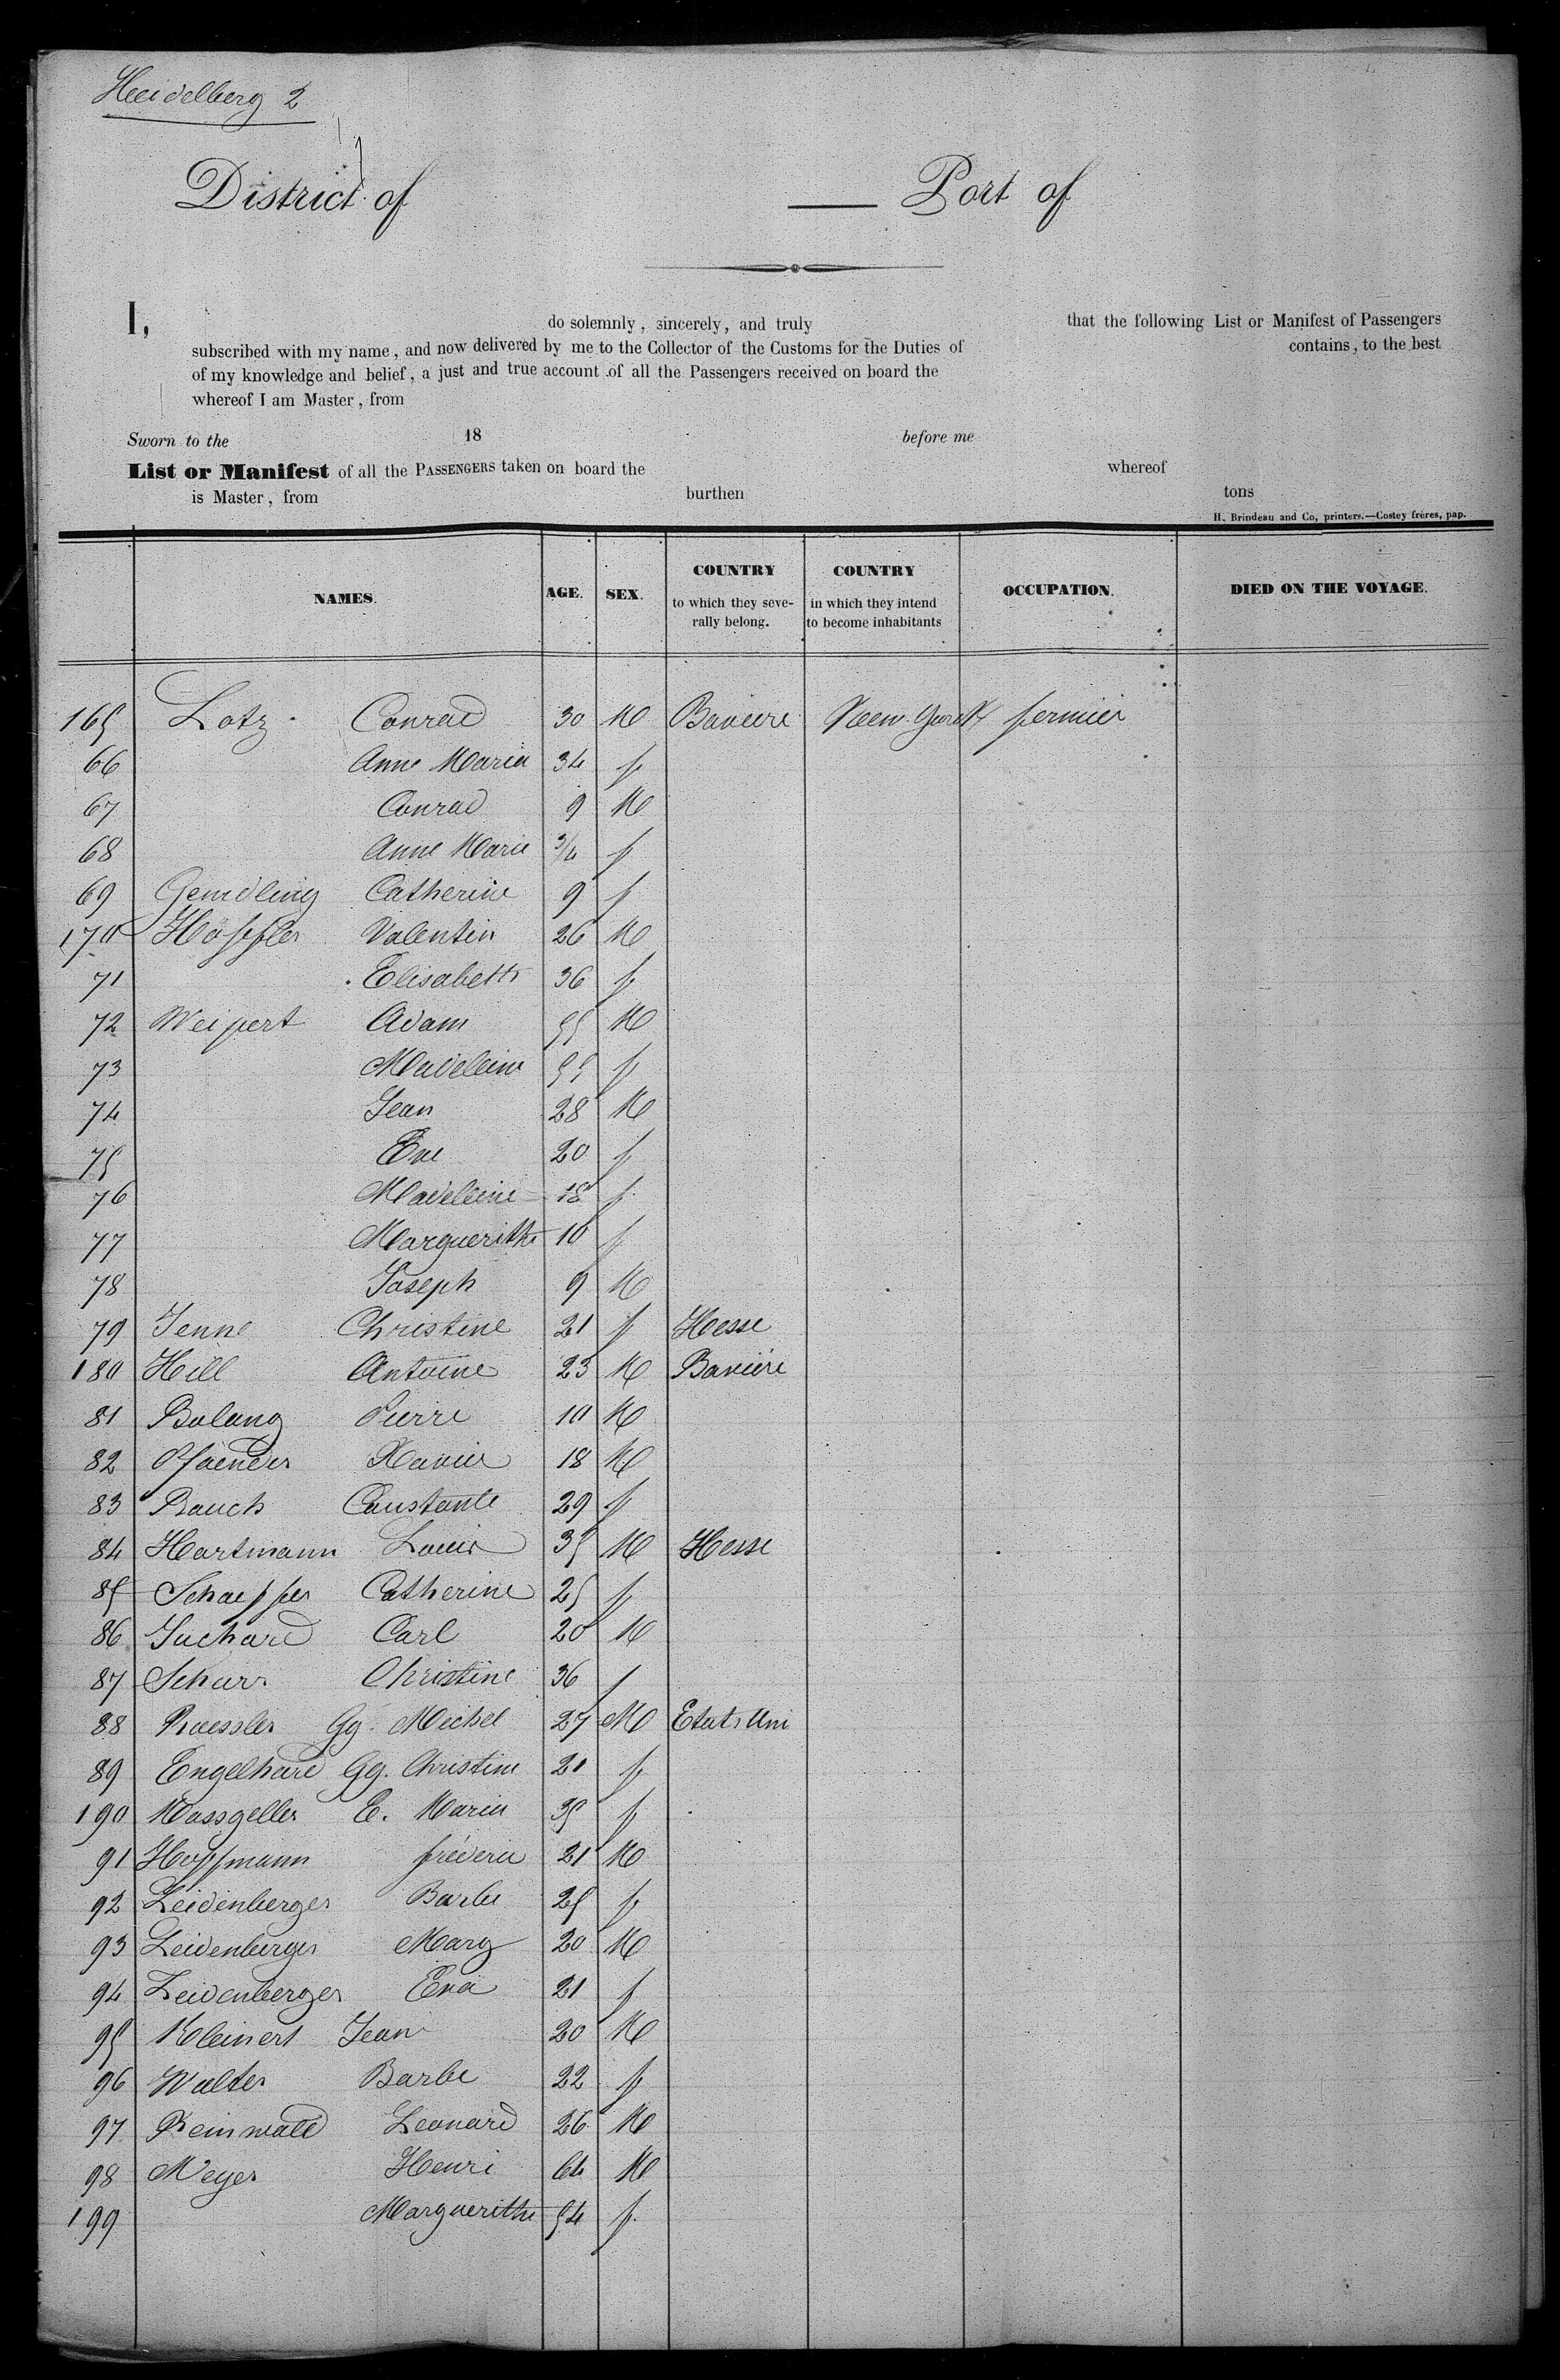 Heidelberg 2
District of Port of
I, do solemnly, sincerely, and truly that the following List or Manifest of Passengers
subscribed with my name, and now delivered by me to the Collector of the Customs for the Duties of contains, to the best
of my knowledge and belief, a just and true account of all the Passengers received on board the
whereof I am Master, from
Sworn to the 18 before me
List or Manifest of all the PASSENGERS taken on board the whereof
is Master, from burthen tons
H. Brindeau and Co, printers.—Costey frères, pap.
NAMES. AGE. SEX. COUNTRY to which they severally belong. COUNTRY in which they intend to become inhabitants OCCUPATION. DIED ON THE VOYAGE.
165 Lotz Conrad 30 M Baviere New York fermier
66 Anne Maria 34 f
67 Conrad 9 M
68 Anne Marie 3/4 f
69 Gemdling Catherine 9 f
170 Valentin 26 M
71 Elisabeth 36 f
72 Weipert Adam 55 M
73 Madeleine 55 f
74 Jean 28 M
75 Eve 20 f
76 Madeleine 18 f
77 Marguerithe 10 f
78 Joseph 9 M
79 Jenne Christine 21 f Hesse
180 Hill Antoine 23 M Baviére
81 Bolang Pierre 10 M
82 Pfaender Xavier 18 M
83 Bauch Constante 29 f
84 Hartmann Louis 35 M Hesse
85 Schaeffer Catherine 25 f
86 Suchard Carl 20 M
87 Schurr Christine 36 f
88 Roessler Gg. Michel 27 M Etats Uni
89 Engelhard Gg. Christine 21 f
190 Massgeller E. Maria 35 f
91 Hoffmann frederic 21 M
92 Leidenberger Barbe 25 f
93 Leidenberger Marg 20 M
94 Leidenberger Eva 21 f
95 Kleinert Jean 20 M
96 Walter Barbe 22 f
97 Reinwald Leonard 26 M
98 Meyer Henri 64 M
199 Marguerithe 54 f